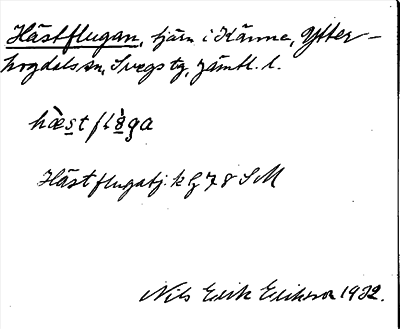 Hästflugan, tjärn i Kärna, Ytter-
hogdals sn, Svegs tg, Jämtl. l.
hæ̀st flɞ̀ga
Hästflugatj. k bg 78 SM
Nils Erik Erikson 1932.